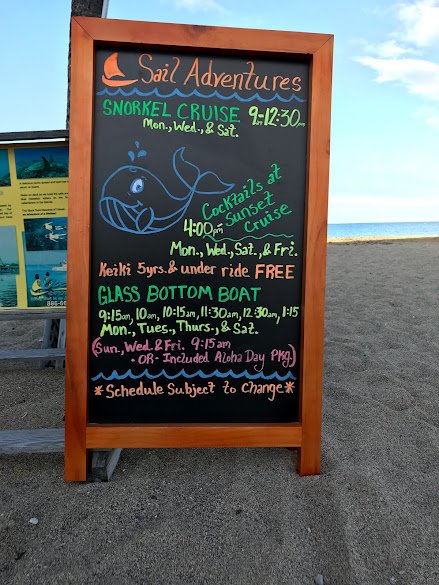 Sail Adventures
SNORKEL CRUISE 9am-12:30pm
Mon., Wed., & Sat.
Cocktails at
Sunset
Cruise
4:00pm
Mon., Wed., Sat., & Fri.
Keiki 5yrs. & under ride FREE
GLASS BOTTOM BOAT
9:15am, 10am, 10:15am, 11:30am, 12:30am, 1:15
Mon., Tues., Thurs., & Sat.
(Sun., Wed. & Fri. 9:15am
• OR • Included Aloha Day Pkg.)
*Schedule Subject to Change*